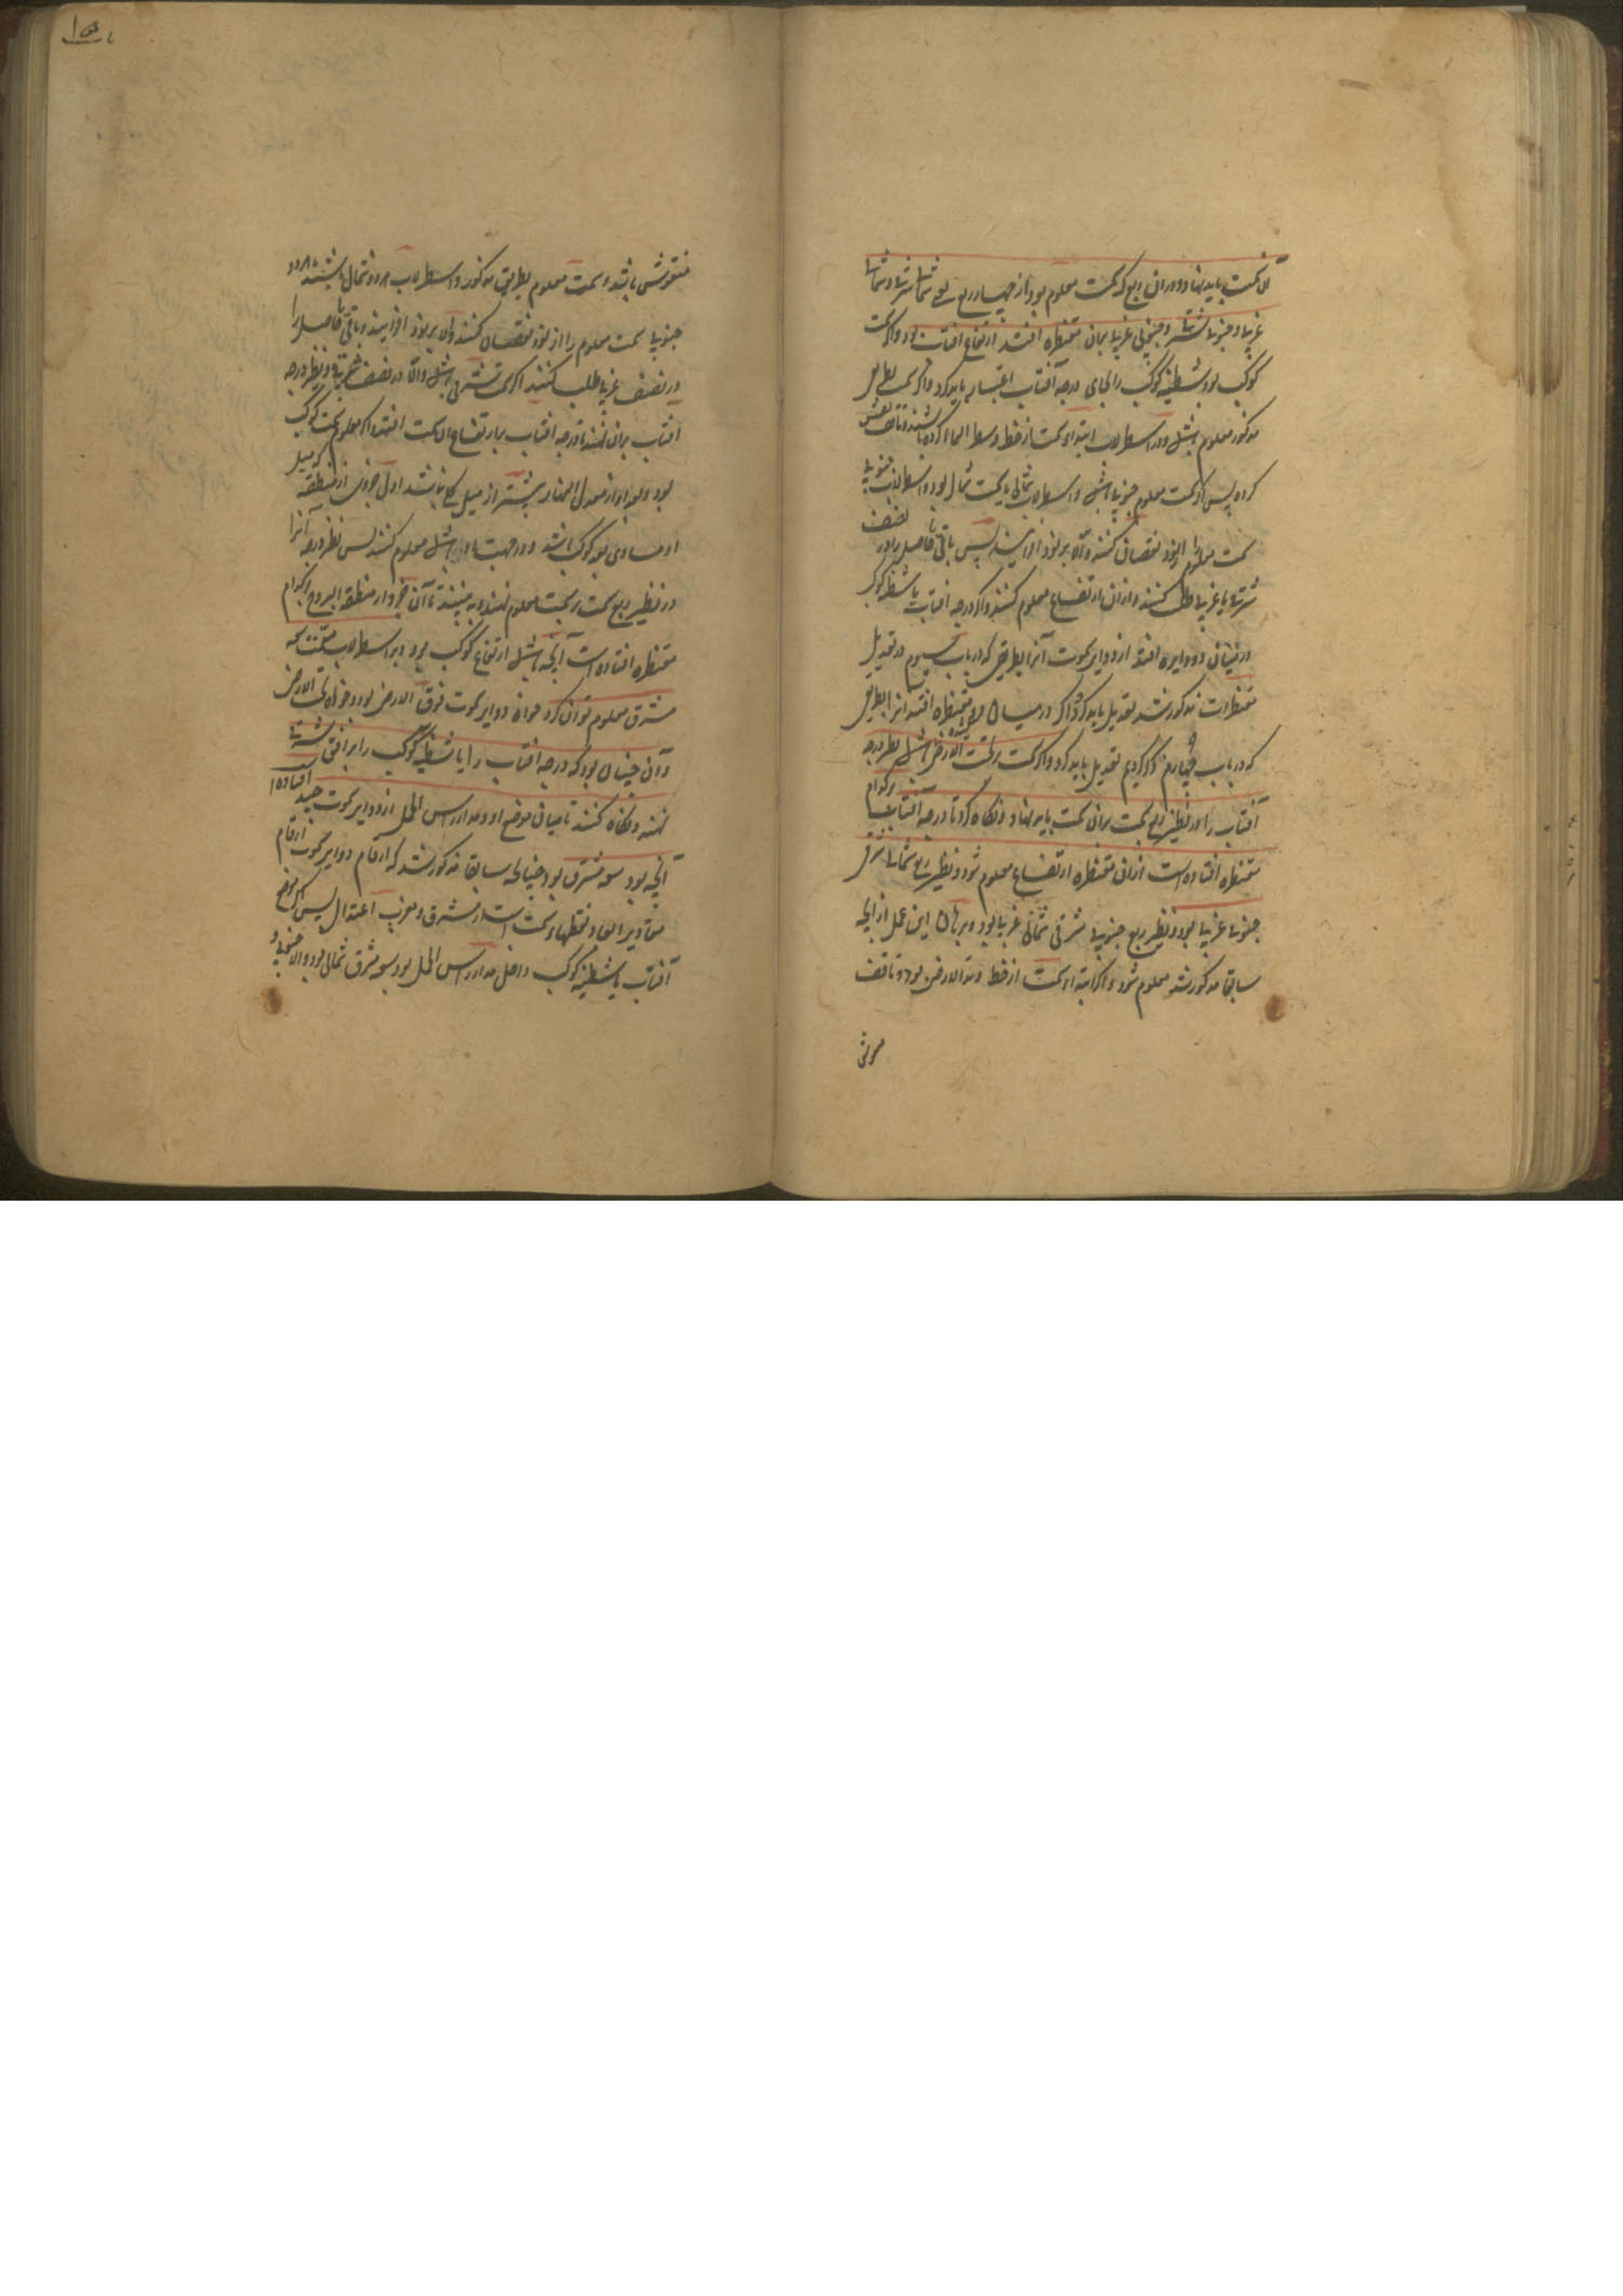 آن سمت باید نهاد و در آن ربع که سمت معلوم بود از چهار ربع یعنی شمالی شرقی و شمالی
غربی و جنوبی شرقی و جنوبی غربی بر آن مقنطره افتد ارتفاع آفتاب بود و اگر سمت
کوکب بود شظیه کوکب را بجای درجه آفتاب اعتبار باید کرد و اگر سمت بطریق
مذکور معلوم باشد و در اسطرلاب ابتداء سمت از خط وسط السماء کرده باشند و تا نقش
کرده پس اگر سمت معلوم جنوبی باشد و اسطرلاب شمالی یا سمت شمالی بود و اسطرلاب جنوبی
سمت معلوم را از نود نقصان کنند و الا بر نود افزایند پس باقی یا حاصل را در نصف
شرقی یا غربی طلب کنند و از آن ارتفاع معلوم کنند و اگر درجه آفتاب یا شظیه کوکب
در میان دو دایره افتد از دوایر سموت آنرا بطریقی که در باب سیوم در تعدیل
مقنطرات مذکور شد تعدیل باید کرد و اگر در میان دو مقنطره افتد آنرا بطریق
که در باب چهارم ذکر کردیم تعدیل باید کرد و اگر سمت تحت الارض باشد نظیر درجه
آفتاب را در نظیر ربع سمت بر آن سمت باید نهاد و نگاه کرد تا درجه آفتاب بر کدام
مقنطره افتاده است از آن مقنطره ارتفاع معلوم شود و نظیر ربع شمالی شرقی
جنوبی غربی بود و نظیر ربع جنوبی شرقی شمالی غربی بود و برهان این عمل از آنچه
سابقا مذکور شد معلوم شود و اگر ابتداء سمت از خط وتد الارض بود و تا قف
منقوش باشد و سمت معلوم بطریق مذکور و اسطرلاب هر دو شمالی باشند یا هر دو
جنوبی سمت معلوم را از نود نقصان کنند و الا بر نود افزایند و باقی یا حاصل را
در نصف غربی طلب کنند اگر سمت شرقی باشد و الا در نصف شرقی و نظیر درجه
آفتاب بر آن نهند تا درجه آفتاب بر ارتفاع آن سمت افتد و اگر معلوم سمت کوکب
بود و بعد او از معدل النهار بیشتر از میل کلی نباشد اول جزوی از منطقه که میل
او مساوی بعد کوکب باشد و در جهت با او باشد معلوم کنند پس نظیر درجه آنرا
در نظیر ربع سمت بر سمت معلوم نهند و به بینند تا آن جزو از منطقة البروج بر کدام
مقنطره افتاده است آنچه باشد ارتفاع کوکب بود و بر اسطرلاب مسمت سعه
مشرق معلوم توان کرد خواه دوایر سموت فوق الارض بود و خواه تحت الارض
و آن چنان بود که درجه آفتاب را یا شظیه کوکب را بر افق شرقی
نهند و نگاه کنند تا میان موضع او و مدار راس الحمل از دوایر سموت چند افتاده
آنچه بود سعه مشرق بود چنانکه سابقا مذکور شد که ارقام دوایر سموت ارقام
مقادیر ابعاد نقطهاء سمت است از مشرق و مغرب اعتدال پس اگر موضع
آفتاب یا شظیه کوکب داخل مدار راس الحمل بود سعه مشرق شمالی بود و الا جنوبی و